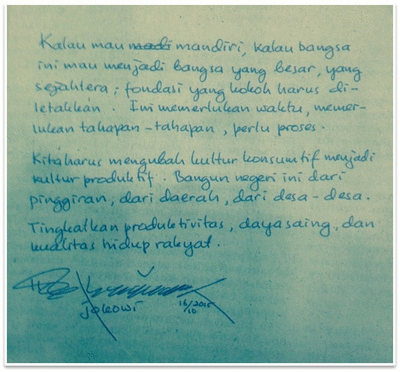 Kalau mau madi mandiri, kalau bangsa
ini mau menjadi bangsa yang besar, yang
sejahtera ; fondasi yang kokoh harus di-
letakkan. Ini memerlukan waktu, memer-
lukan tahapan-tahapan, perlu proses.
Kita harus mengubah kultur konsumtif menjadi
kultur produktif. Bangun negeri ini dari
pinggiran, dari daerah, dari desa-desa.
Tingkatkan produktivitas, daya saing, dan
kualitas hidup rakyat.
jokowi 16/10 2015